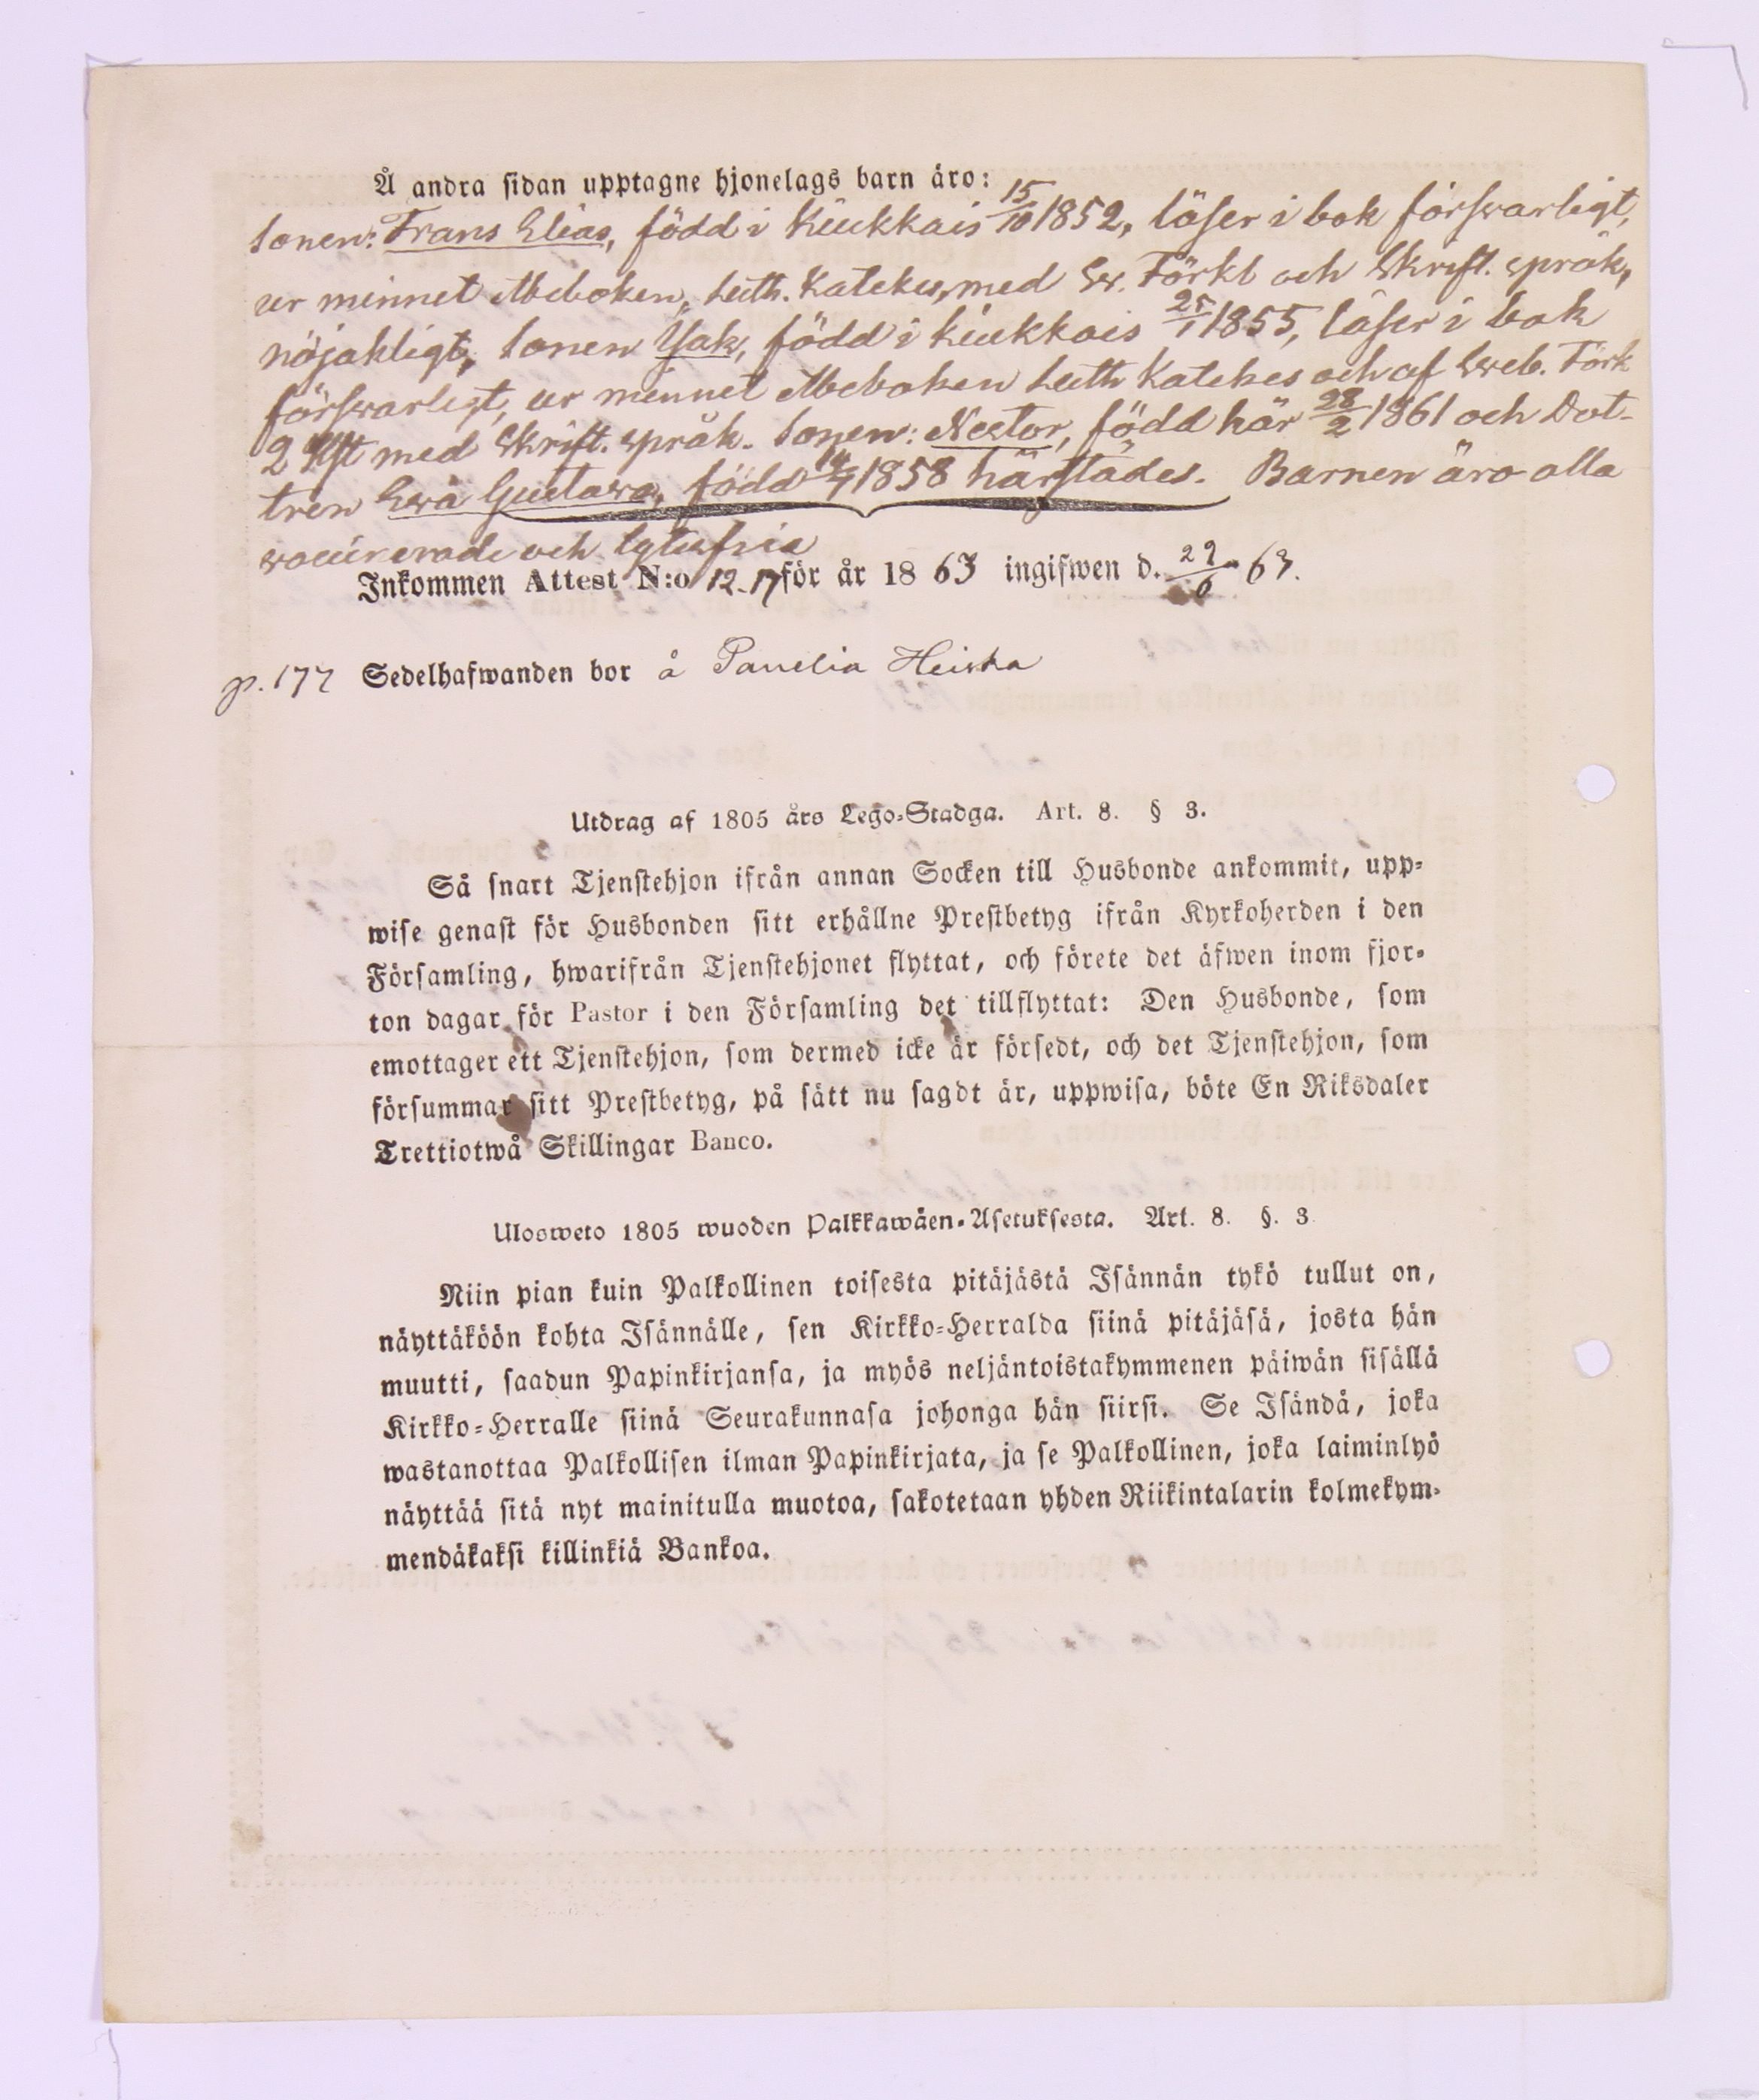 Å andra sidan upptagne hjonelags barn äro:
Sonen: Frans Elias, född i Kiukkais 15/10 1852, läser i bok försvarligt,
ur minnet Abeboken, Luth. Katekes, med Sv. Förkl och Skrift. språk,
nöjakligt, Sonen Isak, född i Kiukkais 25/1 1855, läser i bok
försvarligt, ur minnet Abeboken Luth Katekes och af Sveb. Förk
2 Kst med Skrift. språk. Sonen: Nestor, född här 28/2 1861 och Dot-
tren Eva Gustava, född 14/7 1858 härstädes. Barnen äro alla
vaccinerade och lytesfria
Inkommen Attest N:o 12-17 för år 1863 ingifwen d. 29/6 63.
p. 177 Sedelhafwanden bor å Panelia Heiska
Utdrag af 1805 års Lego-Stadga. Art. 8. § 3.
Så snart Tjenstehjon ifrån annan Socken till Husbonde ankommit, upp-
wise genast för Husbonden sitt erhållne Prestbetyg ifrån Kyrkoherden i den
Församling, hwarifrån Tjenstehjonet flyttat, och förete det äfwen inom fjor-
ton dagar för Pastor i den Församling det tillflyttat: Den Husbonde, som
emottager ett Tjenstehjon, som dermed icke är försedt, och det Tjenstehjon, som
försummar sitt Prestbetyg, på sätt nu sagdt är, uppwisa, böte En Riksdaler
Trettiotwå Skillingar Banco.
Ulosweto 1805 wuoden Palkkawäen-Asetuksesta. Art. 8. §. 3
Niin pian kuin Palkollinen toisesta pitäjästä Isännän tykö tullut on,
näyttäköön kohta Isännälle, sen Kirkko-Herralda siinä pitäjäsä, josta hän
muutti, saadun Papinkirjansa, ja myös neljäntoistakymmenen päiwän sisällä
Kirkko-Herralle siinä Seurakunnasa johonga hän siirsi. Se Isändä, joka
wastanottaa Palkollisen ilman Papinkirjata, ja se Palkollinen, joka laiminlyö
näyttää sitä nyt mainitulla muotoa, sakotetaan yhden Riikintalarin kolmekym-
mendäkaksi killinkiä Bankoa.